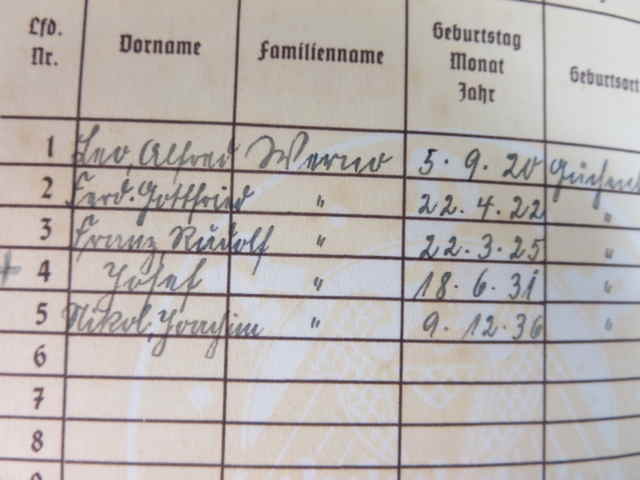 Lfd. Nr. Vorname Familienname Geburtstag Monat Jahr Geburtsort
1 Leo, Alfred Werno 5. 9. 20
2 Ferd. Gottfried " 22. 4. 22 "
3 Franz, Rudolf " 22. 3. 25 "
4 Josef " 18. 6. 31 "
5 Nikol. Joachim " 9. 12. 36 "
6
7
8